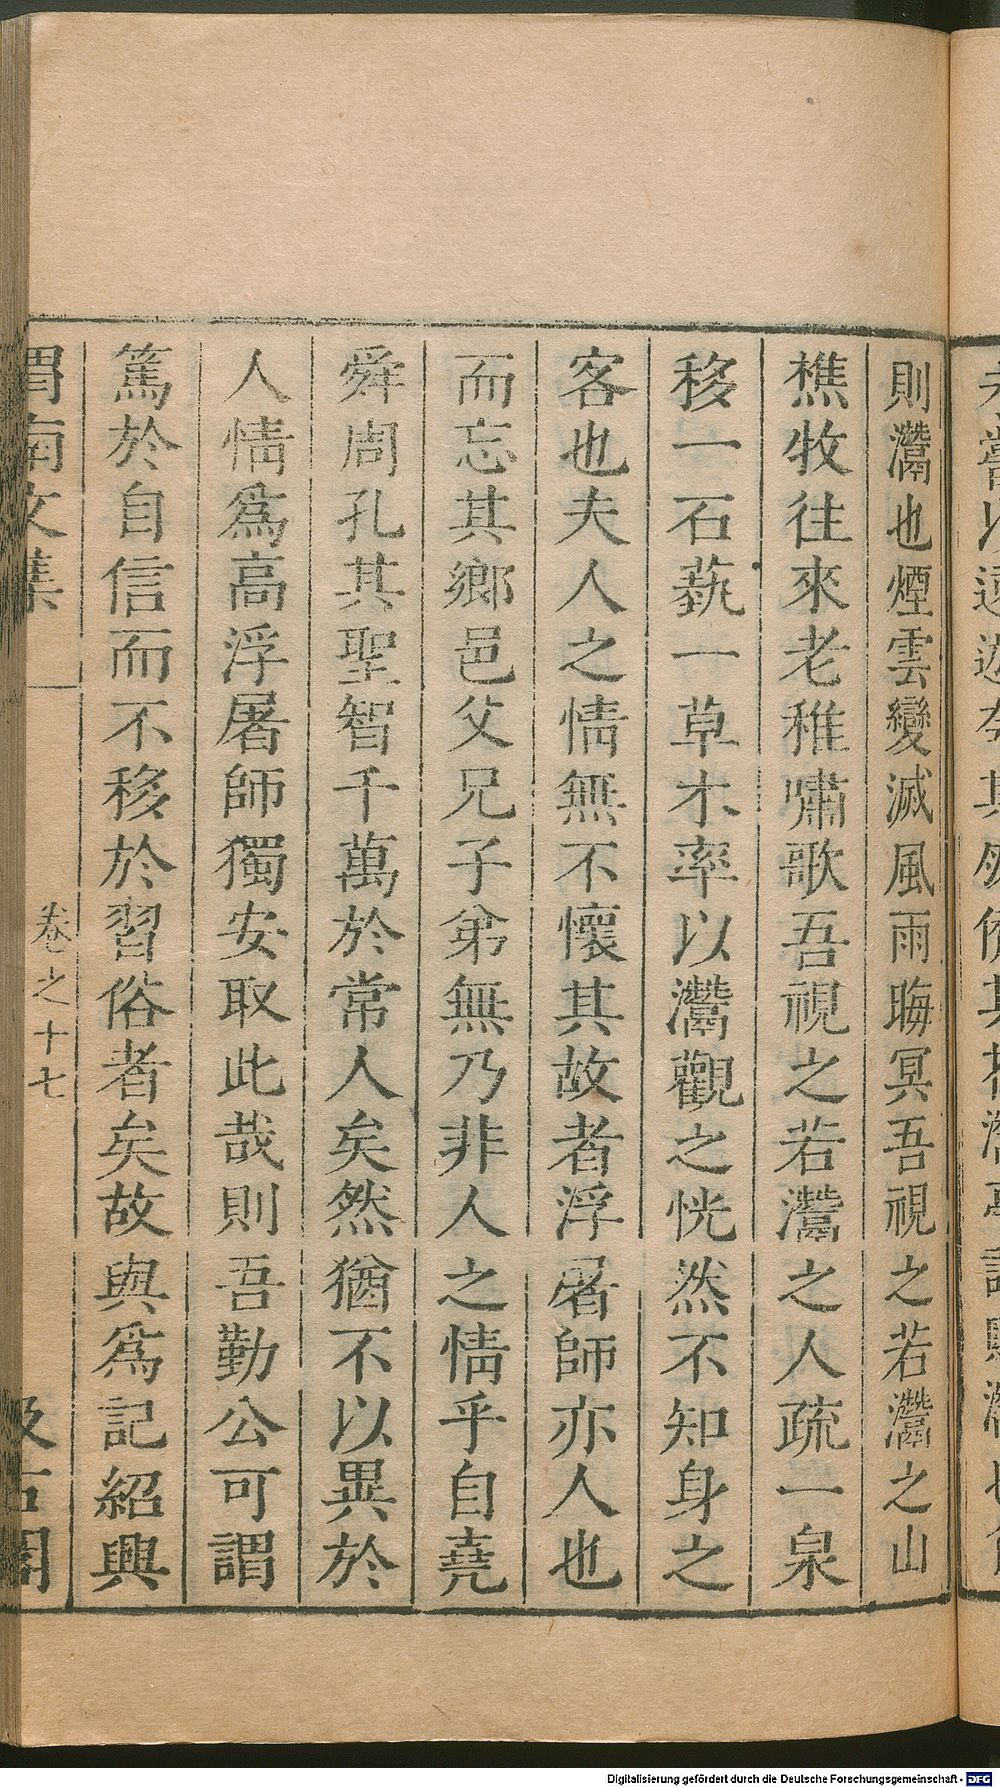 則灊也煙雲變滅風雨晦冥吾視之若灊之山
樵牧往來老稚嘯歌吾視之若灊之人疏一泉
移一石蓺一草木率以灊觀之恍然不知身之
客也夫人之情無不懷其故者浮屠師亦人也
而忘其鄉邑父兄子弟無乃非人之情乎自堯
舜周孔其聖智千萬於常人矣然猶不以異於
人情爲高浮屠師獨安取此哉則吾勤公可謂
篤於自信而不移於習俗者矣故與爲記紹興
渭南文集 卷之十七 汲古閣
Digitalisierung gefördert durch die Deutsche Forschungsgemeinschaft - DFG